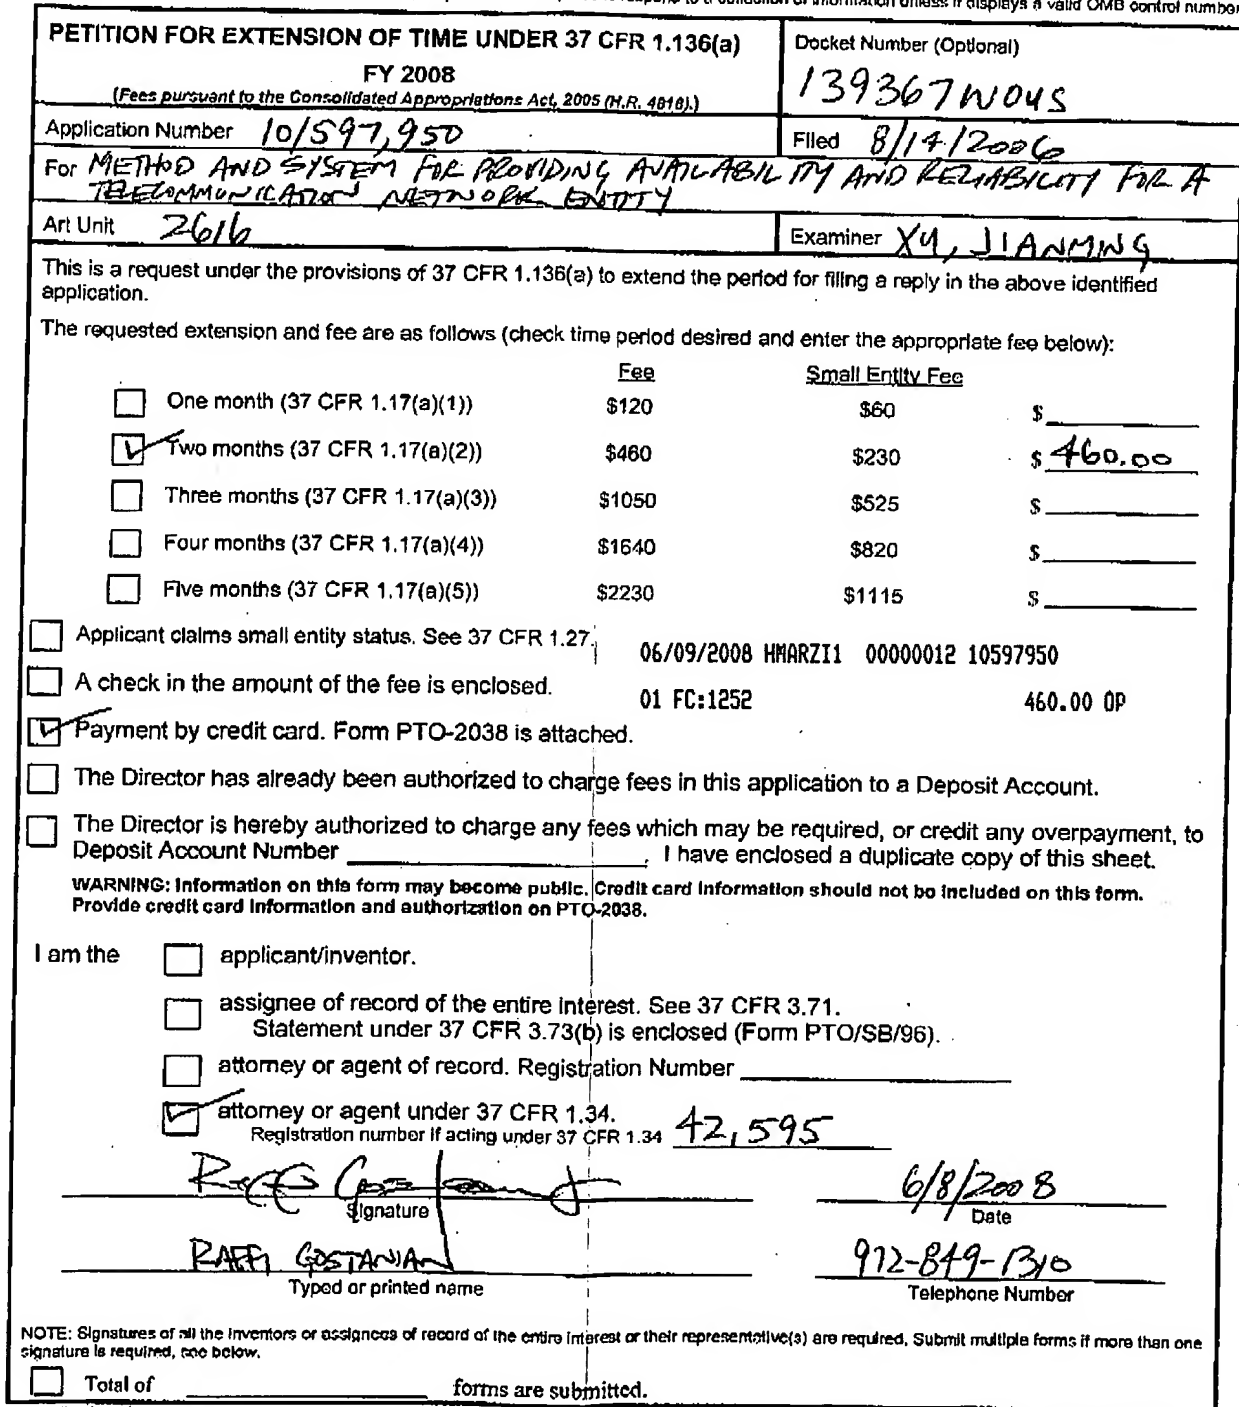 unless it displays a valid OMB control number
PETITION FOR EXTENSION OF TIME UNDER 37 CFR 1.136(a)
FY 2008
(Fees pursuant to the Consolidated Appropriations Act, 2005 (H.R. 4818).)
Docket Number (Optional)
139367WOUS
Application Number 10/597,950
Filed 8/14/2006
For METHOD AND SYSTEM FOR PROVIDING AVAILABILITY AND RELIABILITY FOR A
TELECOMMUNICATION NETWORK ENTITY
Art Unit 2616
Examiner XU, JIANMING
This is a request under the provisions of 37 CFR 1.136(a) to extend the period for filing a reply in the above identified
application.
The requested extension and fee are as follows (check time period desired and enter the appropriate fee below):
Fee Small Entity Fee
One month (37 CFR 1.17(a)(1)) $120 $60 $
Two months (37 CFR 1.17(a)(2)) $460 $230 $ 460.00
Three months (37 CFR 1.17(a)(3)) $1050 $525 $
Four months (37 CFR 1.17(a)(4)) $1640 $820 $
Five months (37 CFR 1.17(a)(5)) $2230 $1115 $
Applicant claims small entity status. See 37 CFR 1.27.
06/09/2008 HMARZI1 00000012 10597950
A check in the amount of the fee is enclosed.
01 FC:1252 460.00 OP
Payment by credit card. Form PTO-2038 is attached.
The Director has already been authorized to charge fees in this application to a Deposit Account.
The Director is hereby authorized to charge any fees which may be required, or credit any overpayment, to
Deposit Account Number . I have enclosed a duplicate copy of this sheet.
WARNING: Information on this form may become public. Credit card information should not be included on this form.
Provide credit card information and authorization on PTO-2038.
I am the
applicant/inventor.
assignee of record of the entire interest. See 37 CFR 3.71.
Statement under 37 CFR 3.73(b) is enclosed (Form PTO/SB/96).
attorney or agent of record. Registration Number
attorney or agent under 37 CFR 1.34.
Registration number if acting under 37 CFR 1.34 42,595
6/8/2008
Signature
Date
RAFFI GOSTANIAN
972-849-1310
Typed or printed name
Telephone Number
NOTE: Signatures of all the inventors or assignees of record of the entire interest or their representative(s) are required. Submit multiple forms if more than one
signature is required, see below.
Total of forms are submitted.